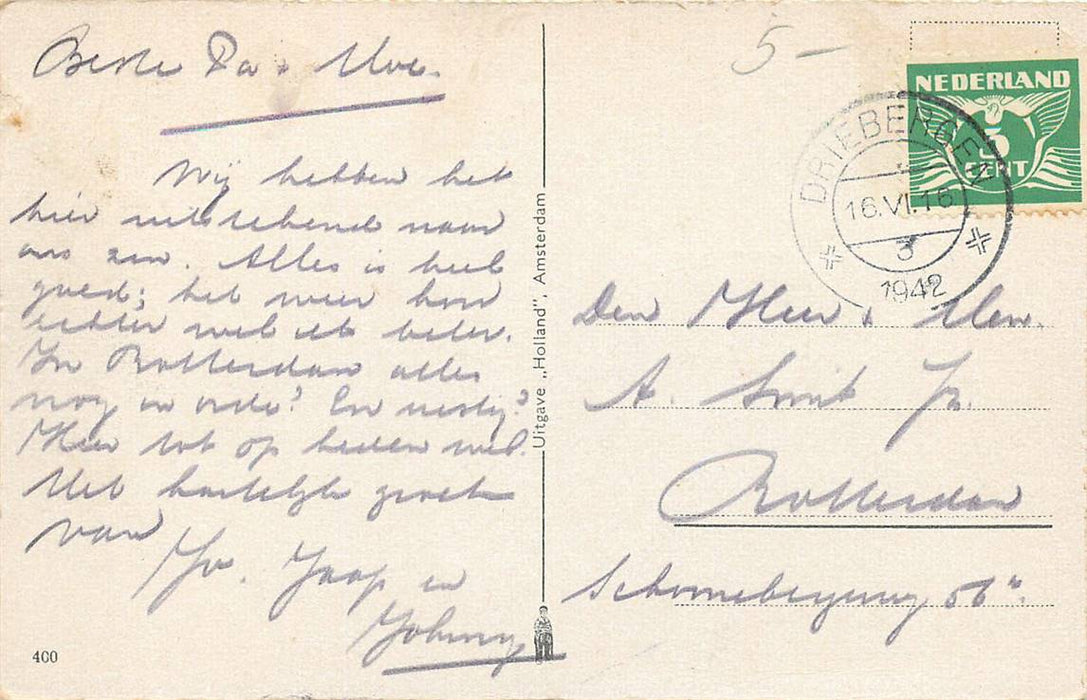 Beste Pa & Moe.
Wij hebben het
hier uitstekend naar
ons zin. Alles is heel
goed; het weer kon
echter wel iets beter.
In Rotterdam alles
nog in orde? En rustig?
Hier tot op heden wel.
Met hartelijke groeten
van
Jo. Jaap en
Johnny
400
Uitgave „Holland”, Amsterdam
5 -
NEDERLAND
5
CENT
DRIEBERGEN
16.VI.16
3
1942
Den Heer & Mev.
A. Smit Jr.
Rotterdam
56